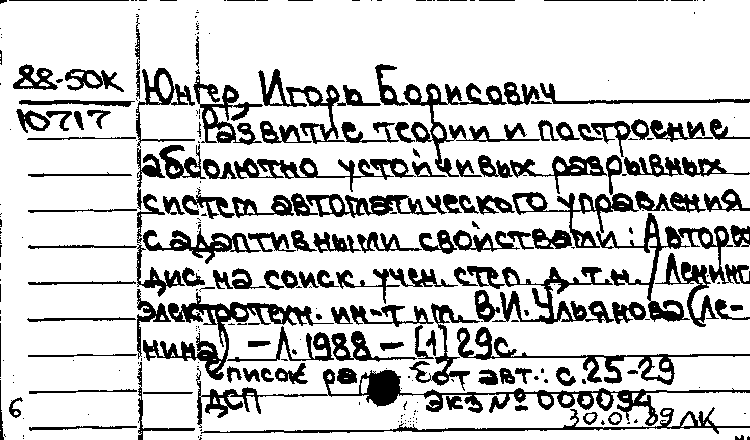 88-50К Юнгер, Игорь Борисович
10717 Развитие теории и построение
абсолютно устойчивых разрывных
систем автоматического управления
с адаптивными свойствами : Авторе
дис. на соиск. учен. степ. д.т.н. / Ленинг
электротехн. ин-т им. В.И. Ульянова (Ле-
нина). – Л. 1988 – [1] 29с.
Список работ авт.: с.25-29
6 ДСП экз № 000094
30.01.89 ЛК